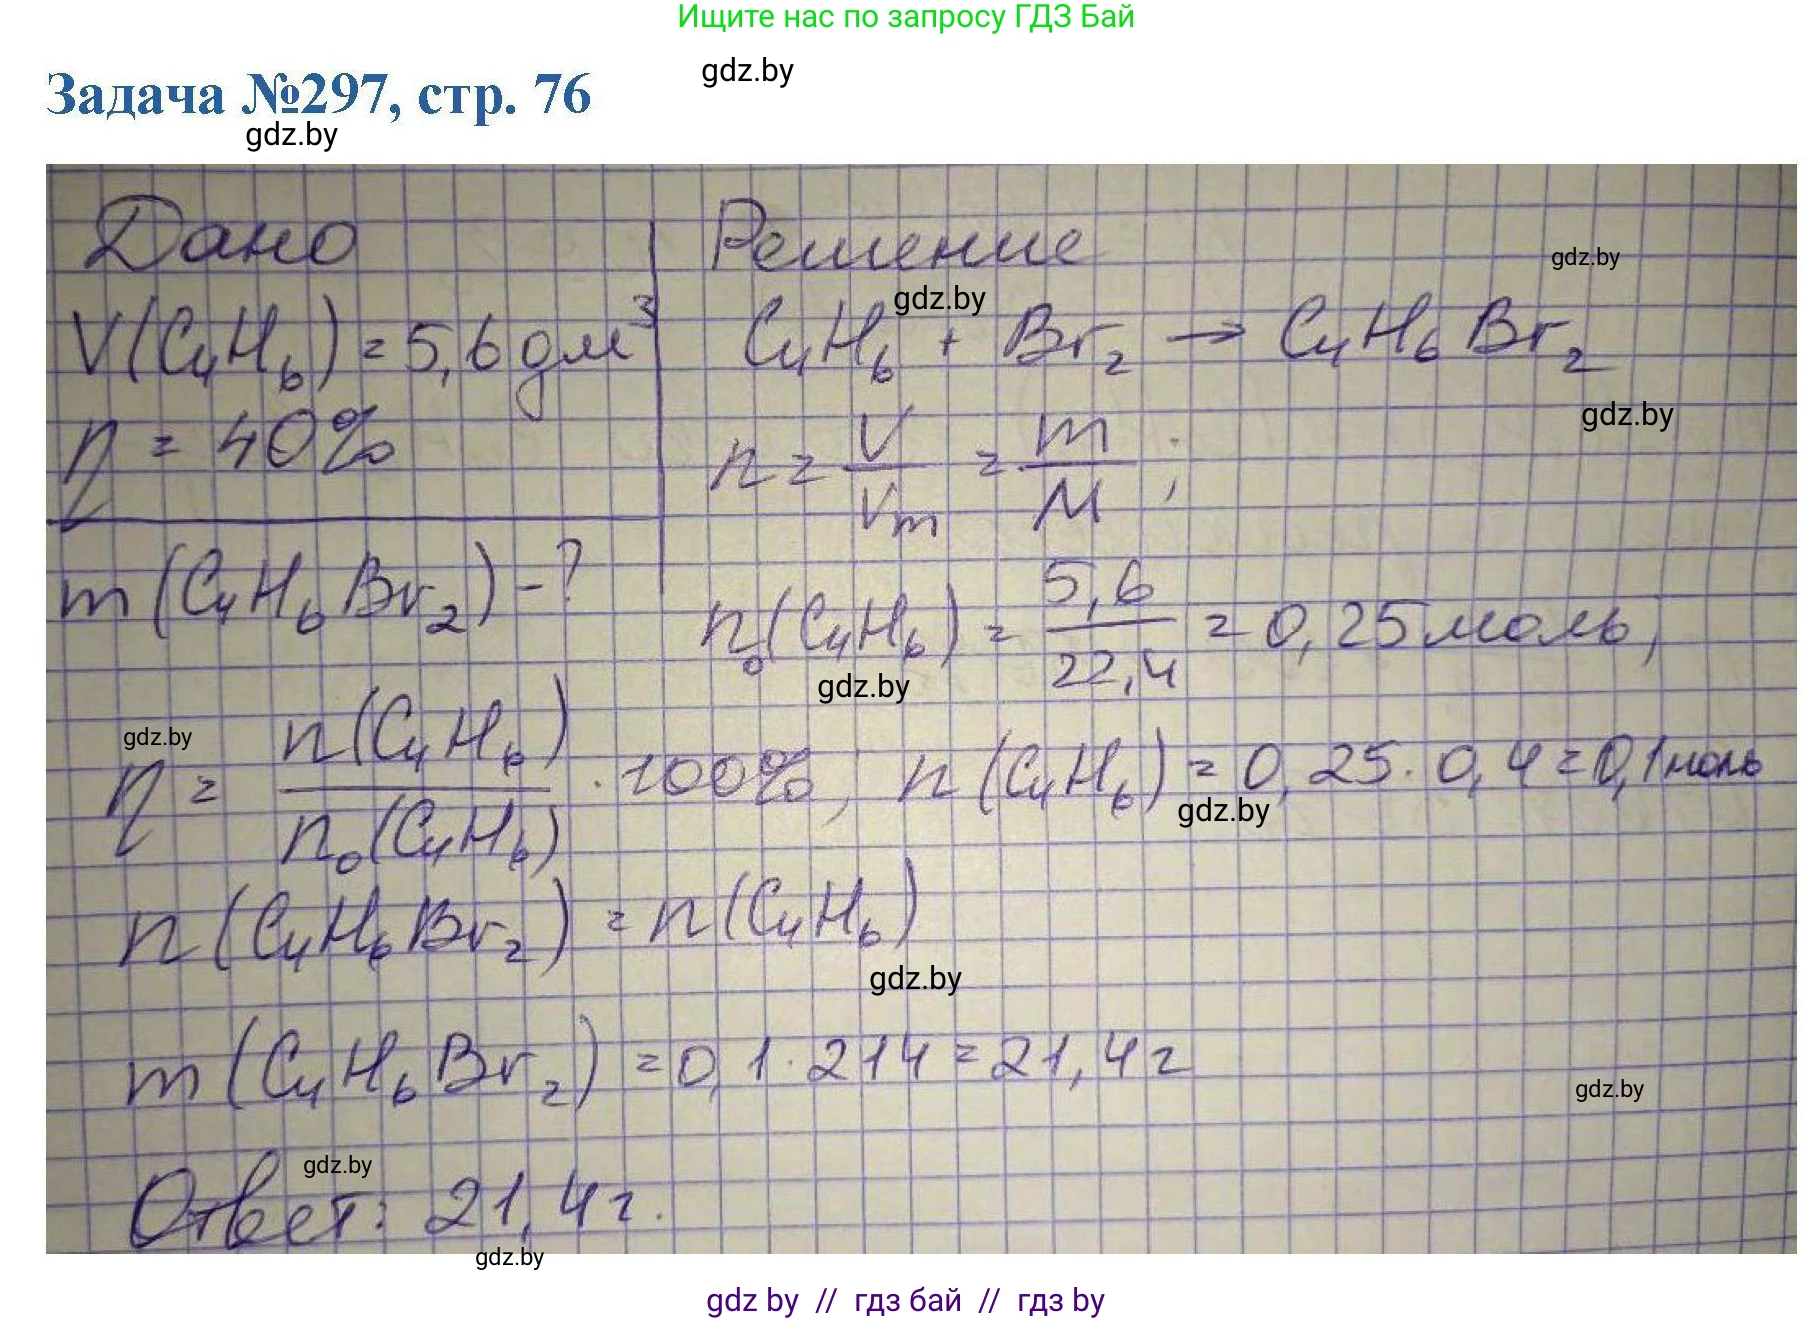 Ищите нас по запросу ГДЗ Бай
Задача №297, стр. 76
gdz.by
gdz.by
Дано
Решение
gdz.by
V(C₄H₆) = 5,6 дм³
gdz.by
C₄H₆ + Br₂ → C₄H₆Br₂
gdz.by
η = 40%
n = V/Vm = m/M;
m(C₄H₆Br₂) - ?
n₀(C₄H₆) = 5,6/22,4 = 0,25 моль;
gdz.by
gdz.by
η = n(C₄H₆)/n₀(C₄H₆) · 100%; n(C₄H₆) = 0,25 · 0,4 = 0,1 моль
gdz.by
n(C₄H₆Br₂) = n(C₄H₆)
gdz.by
m(C₄H₆Br₂) = 0,1 · 214 = 21,4 г
gdz.by
gdz.by
Ответ: 21,4 г.
gdz.by
gdz by // гдз бай // гдз by